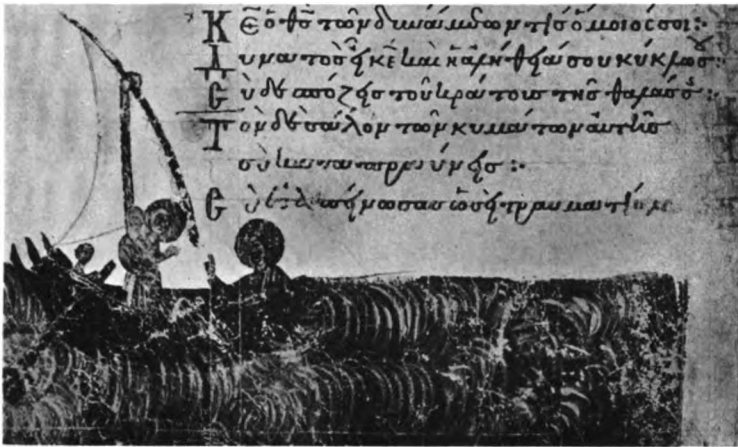 Κε ὁ θς τῶν δυνάμεων τίς ὅμοιός σοι:
Δυνατὸς εἶ κε καὶ ἡ ἀλήθειά σου κύκλω σου:
Σὺ δεσπόζεις τοῦ κράτους τῆς θαλάσσης:
Τὸν δὲ σάλον τῶν κυμάτων αὐτῆς
σὺ καταπραΰνεις:
Σὺ ἐταπείνωσας ὡς